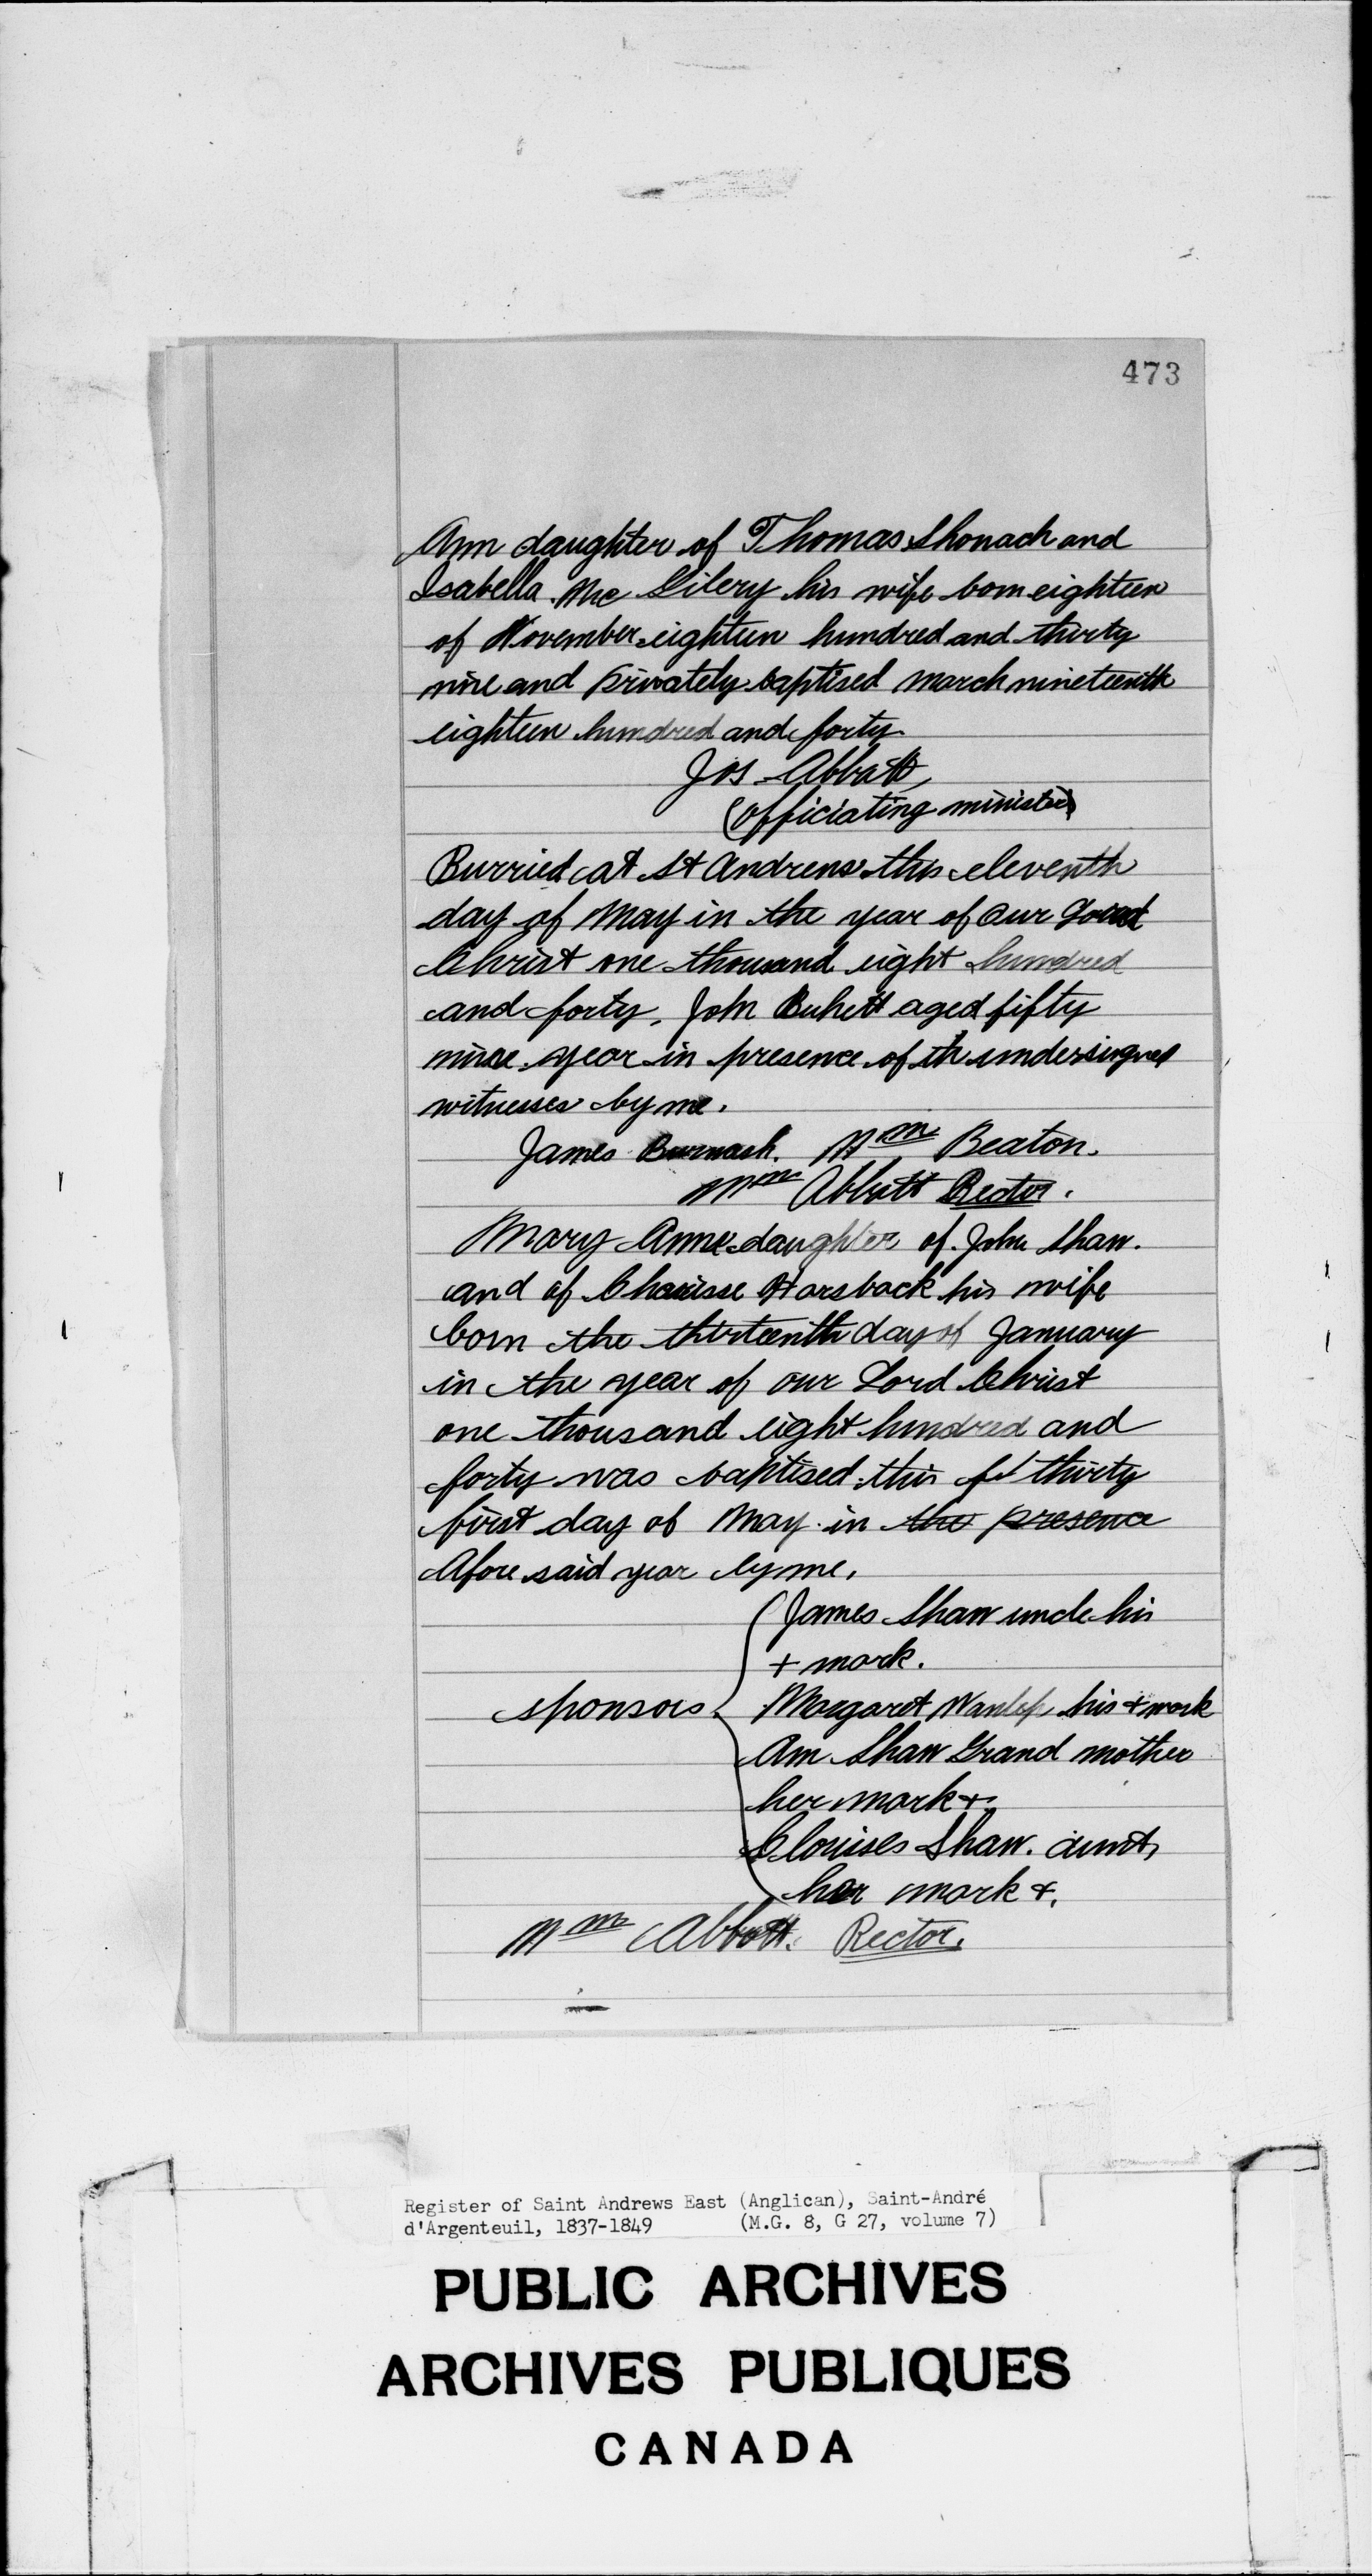 473
Ann daughter of Thomas Shonach and
Isabella Mc Lilery his wife born eighteen
of November eighteen hundred and thirty
nine and privately baptised march nineteenth
eighteen hundred and forty
Jos Abbott
(officiating minister)
Burried at St Andrens this eleventh
day of May in the year of our Lord
Christ one thousand eight hundred
and forty, John aged fifty
nine year in presence of th undersigned
witnesses by me.
James Burwash. Wm Beaton.
Wm Abbott Rector.
Mary Anne daughter of John Shaw.
and of Charisse Harsback his wife
born the thirteenth day of January
in the year of our Lord Christ
one thousand eight hundred and
forty was baptised this thirty
first day of May in the presence
Afore said year by me,
James Shaw uncle his
+ mark.
sponsors Margaret his + mark
Ann Shaw Grand mother
her mark +
Clouises Shaw. aunt,
her mark +.
Wm Abbott. Rector.
Register of Saint Andrews East (Anglican), Saint-André
d'Argenteuil, 1837-1849 (M.G. 8, G 27, volume 7)
PUBLIC ARCHIVES
ARCHIVES PUBLIQUES
CANADA